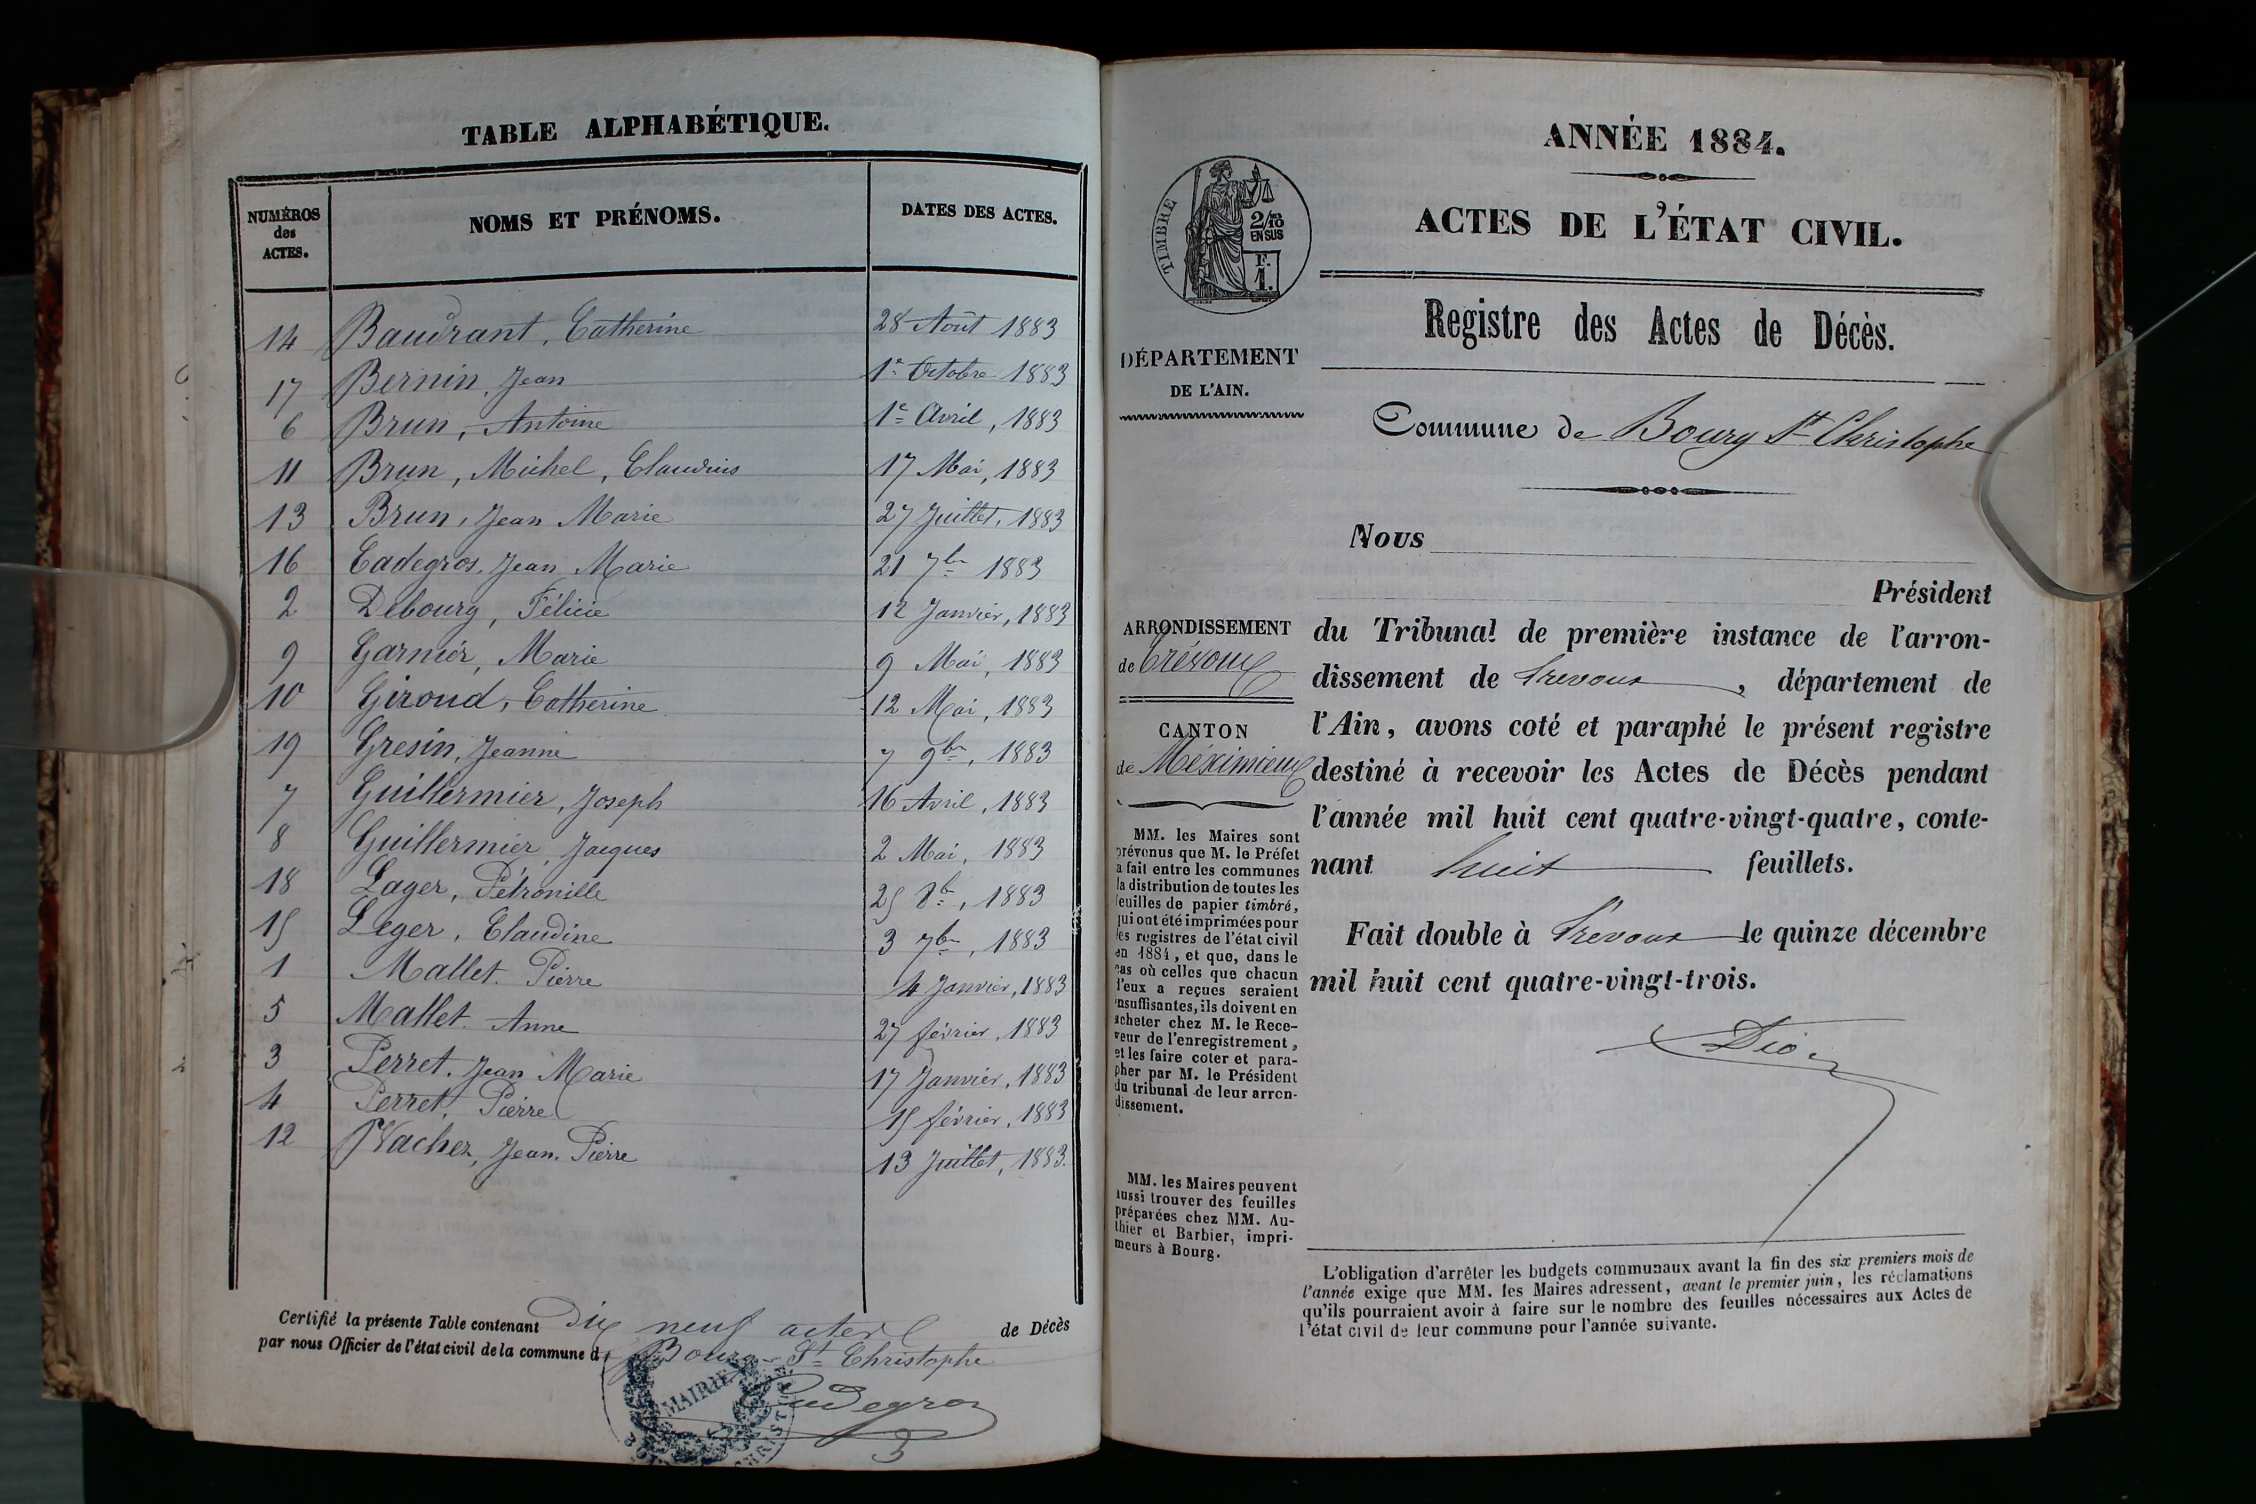 TABLE ALPHABÉTIQUE.
NUMÉROS des ACTES. NOMS ET PRÉNOMS. DATES DES ACTES.
14 Baudrant, Catherine 28 Août 1883
17 Bernin, Jean 1er Octobre 1883
6 Brun, Antoine 1er Avril, 1883
11 Brun, Michel, Claudius 17 Mai, 1883
13 Brun, Jean Marie 27 Juillet, 1883
16 Cadegros, Jean Marie 21 7bre 1883
2 Debourg, Félicie 12 Janvier, 1883
9 Garnier, Marie 9 Mai, 1883
10 Giroud, Catherine 12 Mai, 1883
19 Gresin, Jeanne 7 9bre, 1883
7 Guillermier, Joseph 16 Avril, 1883
8 Guillermier, Jacques 2 Mai, 1883
18 Lager, Pétronille 25 8bre, 1883
15 Leger, Claudine 3 7bre, 1883
1 Mallet, Pierre 4 Janvier, 1883
5 Mallet, Anne 27 février, 1883
3 Perret, Jean Marie 17 Janvier, 1883
4 Perret, Pierre 15 février, 1883
12 Vacher, Jean, Pierre 13 Juillet, 1883.
Certifié la présente Table contenant Dix neuf actes de Décès
par nous Officier de l'état civil de la commune d Bourg St Christophe
MAIRIE
Cadegros
ANNÉE 1884.
ACTES DE L'ÉTAT CIVIL.
TIMBRE
2/10 EN SUS
F. 1.
Registre des Actes de Décès.
DÉPARTEMENT
DE L'AIN.
Commune de Bourg St Christophe
ARRONDISSEMENT
de Trévoux
CANTON
de Méximieux
MM. les Maires sont
prévenus que M. le Préfet
a fait entre les communes
la distribution de toutes les
feuilles de papier timbré,
qui ont été imprimées pour
les registres de l'état civil
en 1884, et que, dans le
cas où celles que chacun
d'eux a reçues seraient
insuffisantes, ils doivent en
acheter chez M. le Rece-
veur de l'enregistrement,
et les faire coter et para-
pher par M. le Président
du tribunal de leur arron-
dissement.
MM. les Maires peuvent
aussi trouver des feuilles
préparées chez MM. Au-
thier et Barbier, impri-
meurs à Bourg.
Nous
Président
du Tribunal de première instance de l'arron-
dissement de Trevoux, département de
l'Ain, avons coté et paraphé le présent registre
destiné à recevoir les Actes de Décès pendant
l'année mil huit cent quatre-vingt-quatre, conte-
nant huit feuillets.
Fait double à Trevoux le quinze décembre
mil huit cent quatre-vingt-trois.
L'obligation d'arrêter les budgets communaux avant la fin des six premiers mois de
l'année exige que MM. les Maires adressent, avant le premier juin, les réclamations
qu'ils pourraient avoir à faire sur le nombre des feuilles nécessaires aux Actes de
l'état civil de leur commune pour l'année suivante.